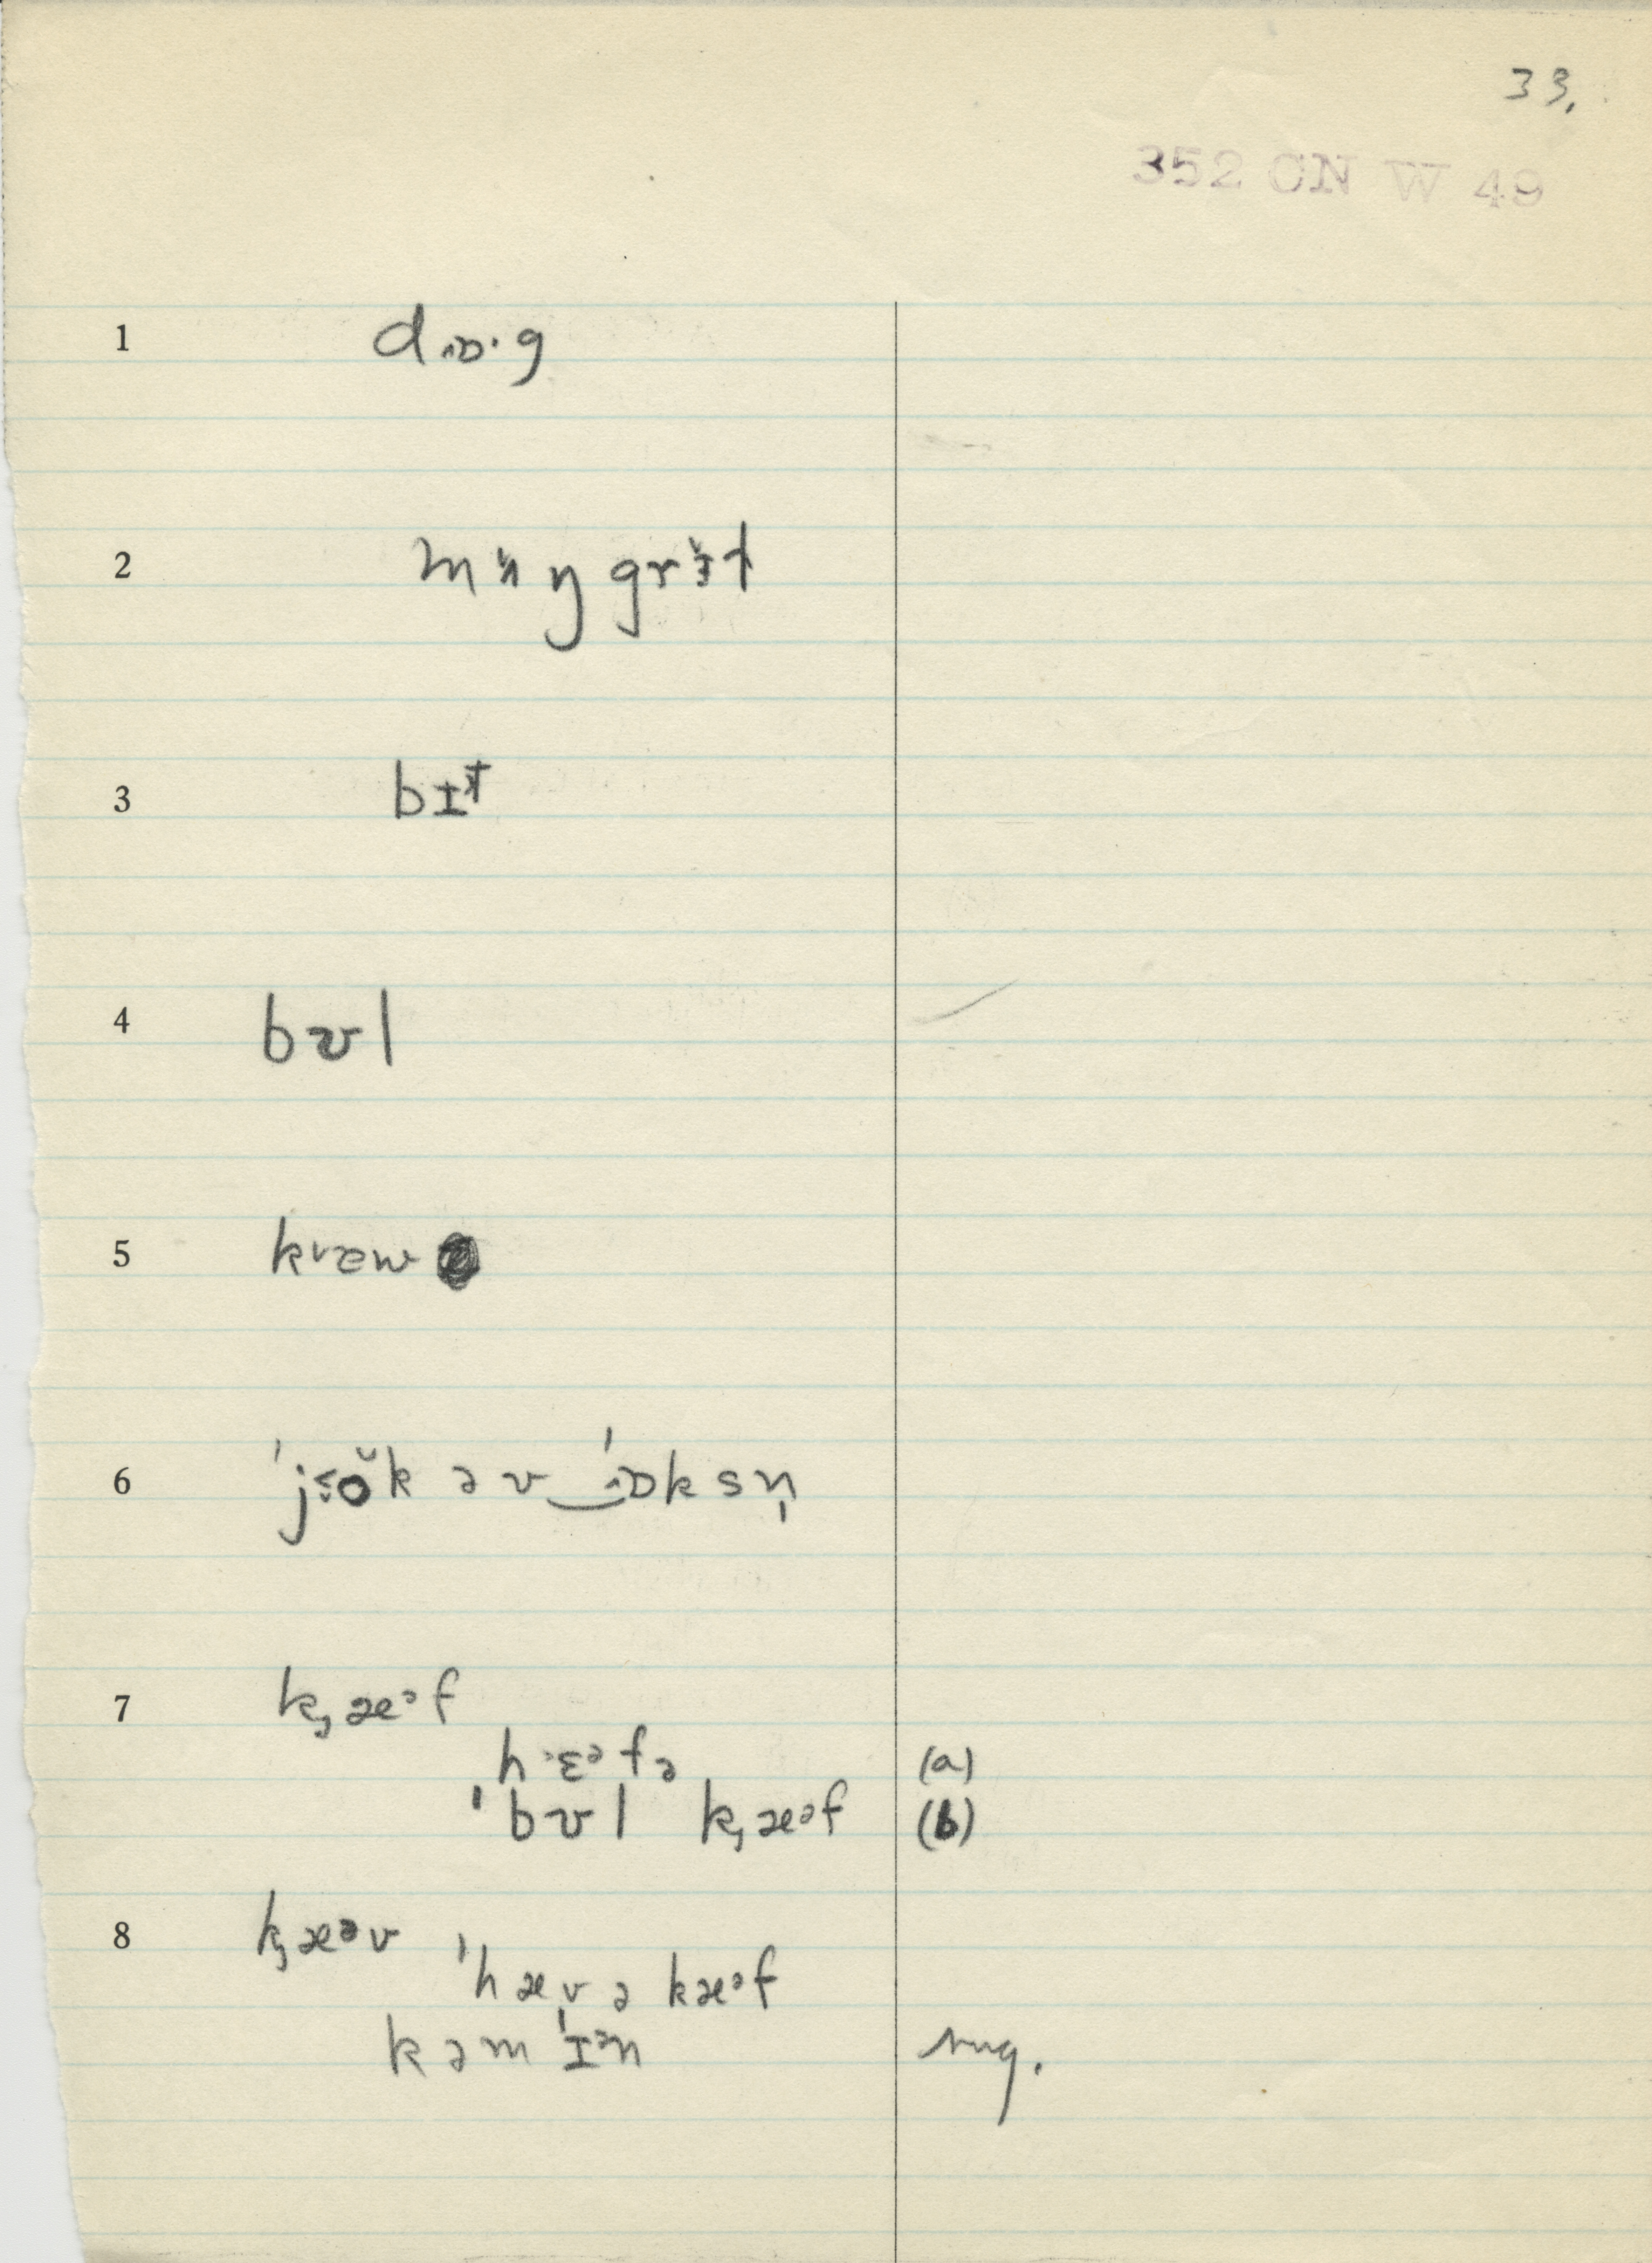 33.
352 CN W 49
1 dɒ·g
2 mʌŋgrɪ̆t
3 bɪt
4 bʊl
5 kræw
6 ˈjɛŏk əv‿ˈɒksn̩
7 k̡æᵊf
hɛᵊfə (a)
ˈbʊl k̡æᵊf (b)
8 k̡æᵊv
ˈhæv ə kæᵊf
kəmˈɪᵊn sug.